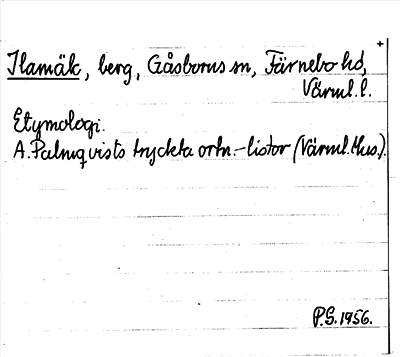 Ilamäk, berg, Gåsborns sn, Färnebo hd,
Värml. l.
Etymologi.
A. Palmqvists tryckta ortn.-listor (Värml. Mus.).
P.G. 1956.